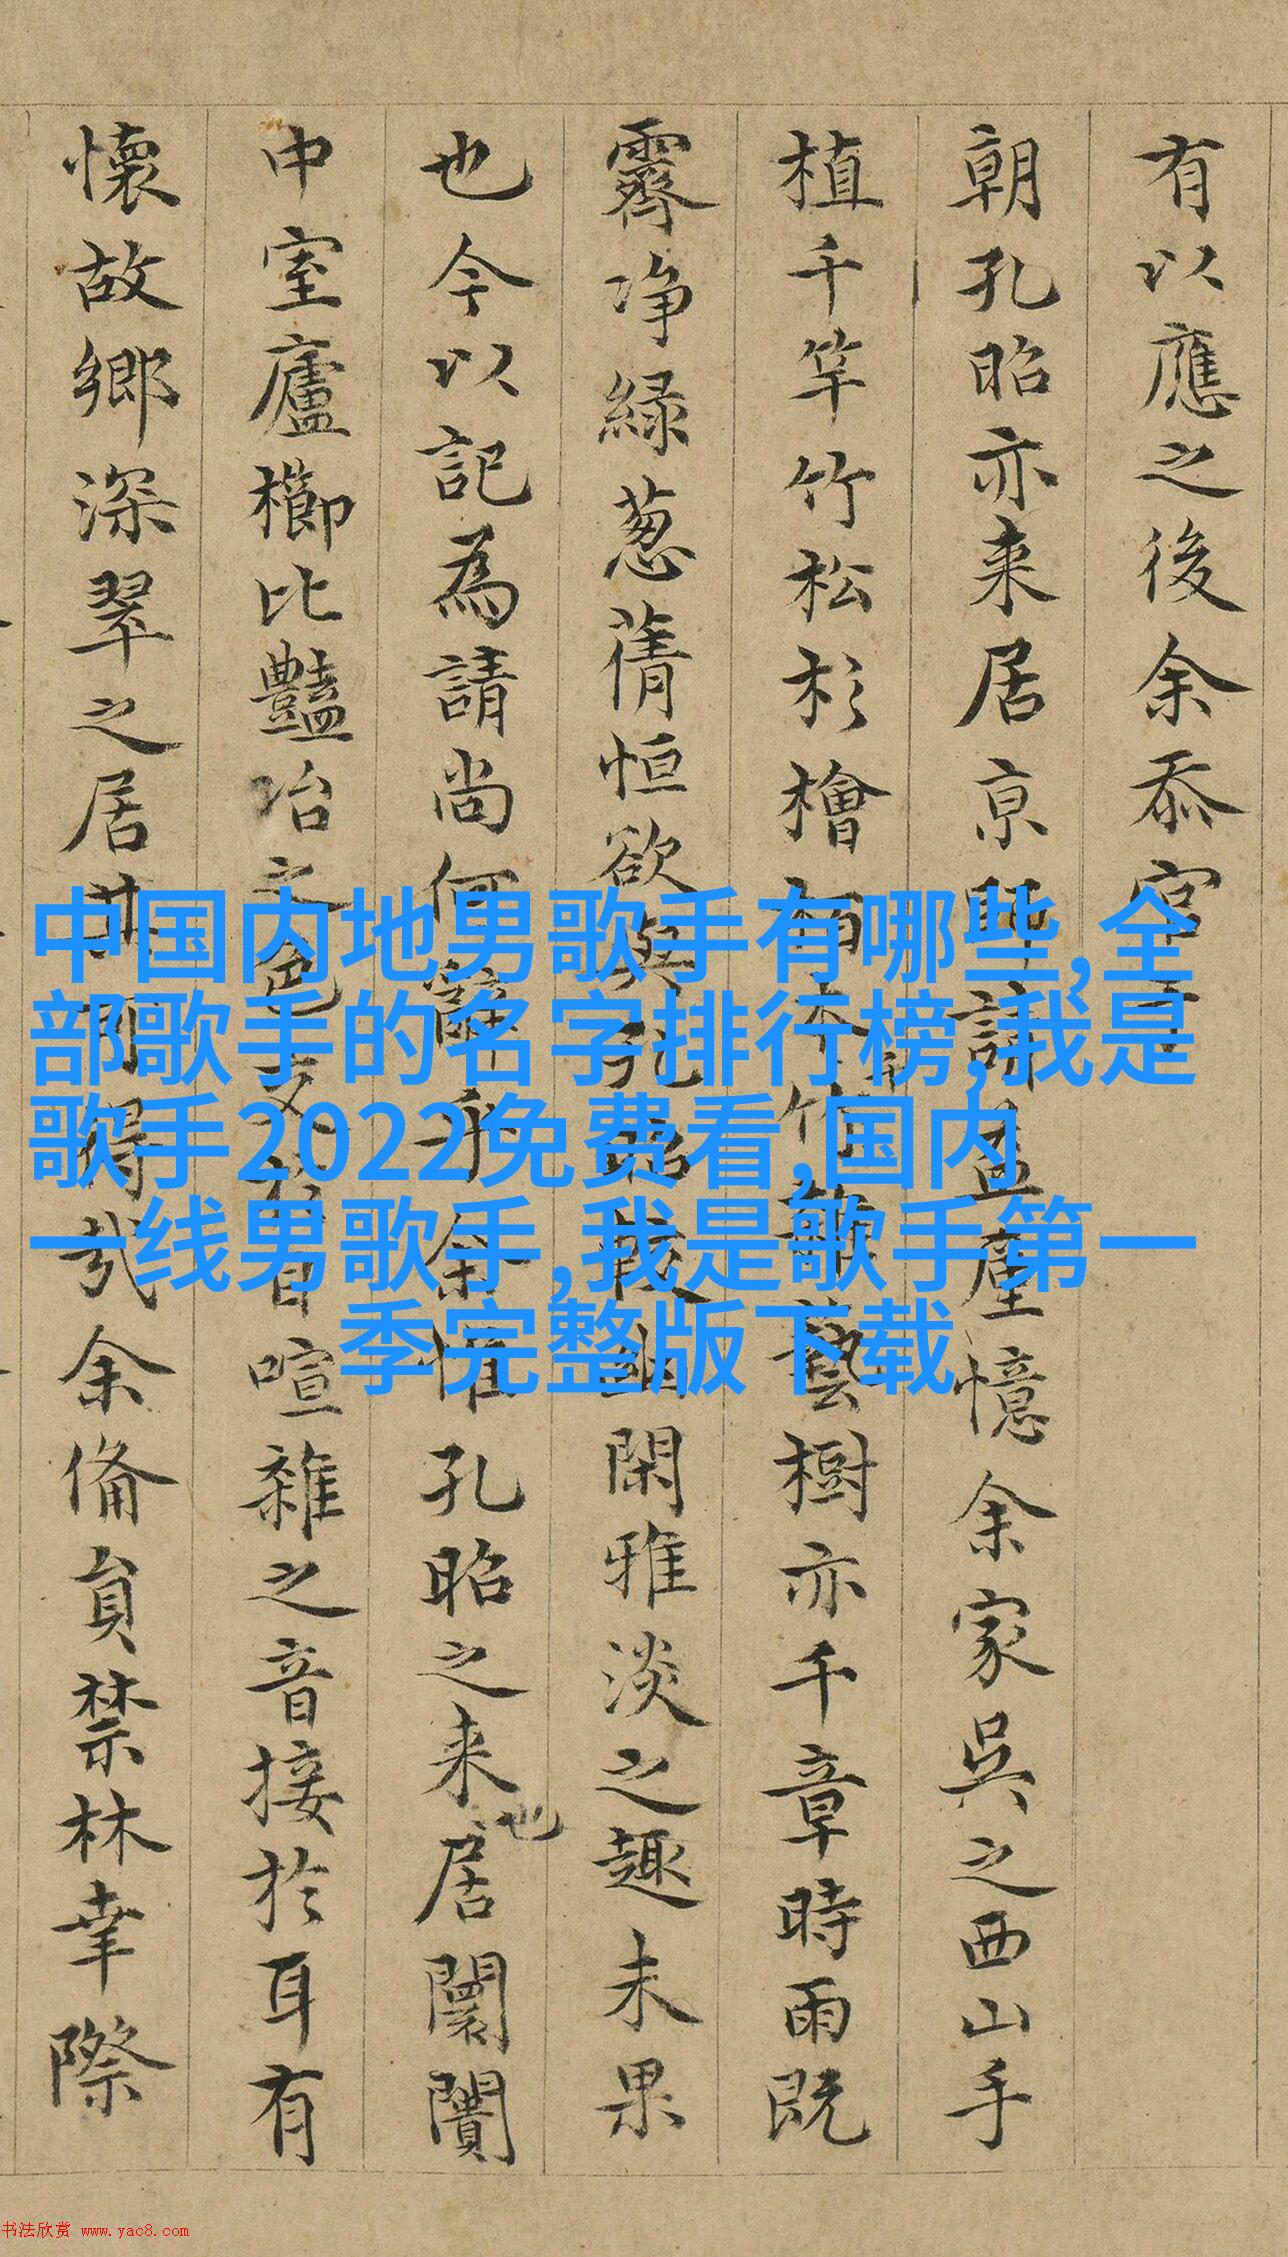 有以應之後余忝官于
朝孔昭亦来居京師憶余家吳之西山手
植千竿竹松杉檜栢樹亦千章時雨既
霽净緑葱蒨恒欲與孔昭閑雅淡之趣未果
也今以記為請尚何辭乎余惟孔昭之来居闤闠
也
中室廬櫛比豔冶之色交目喧雜之音接於耳有
懷故鄉深翠之居其可得哉余備員禁林幸際
中国内地男歌手有哪些,全
部歌手的名字排行榜,我是
歌手2022免费看,国内
一线男歌手,我是歌手第一
季完整版下载
书法欣赏 www.yac8.com